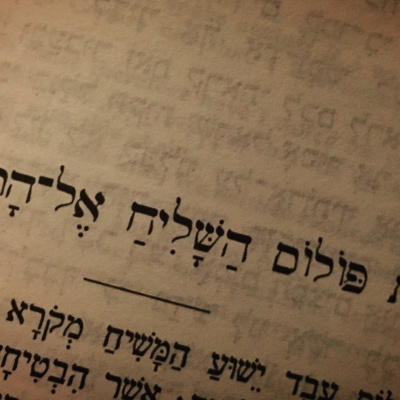 פּוֹלוֹס הַשָּׁלִיחַ אֶל־
עֶבֶד יֵשׁוּעַ הַמָּשִׁיחַ מְקֹרָא
אֲשֶׁר הִבְטִיחָ